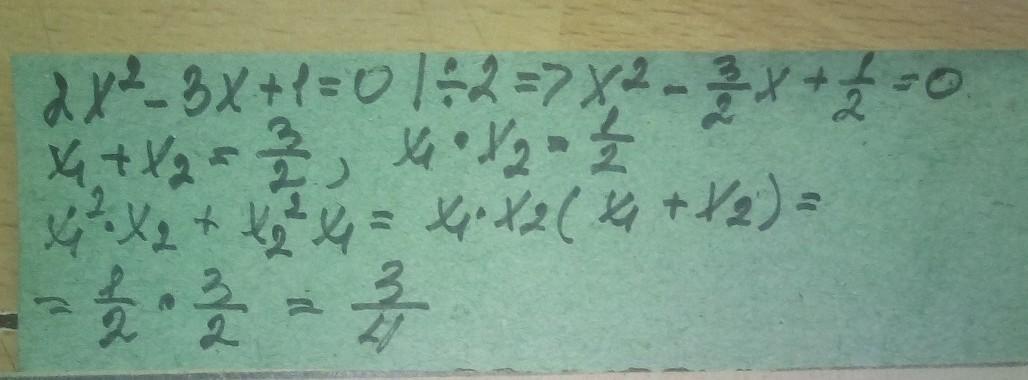 2x² - 3x + 1 = 0 | ÷2 => x² - 3/2 x + 1/2 = 0
x₁ + x₂ = 3/2, x₁ · x₂ = 1/2
x₁² · x₂ + x₂² x₁ = x₁ · x₂ ( x₁ + x₂ ) =
= 1/2 · 3/2 = 3/4